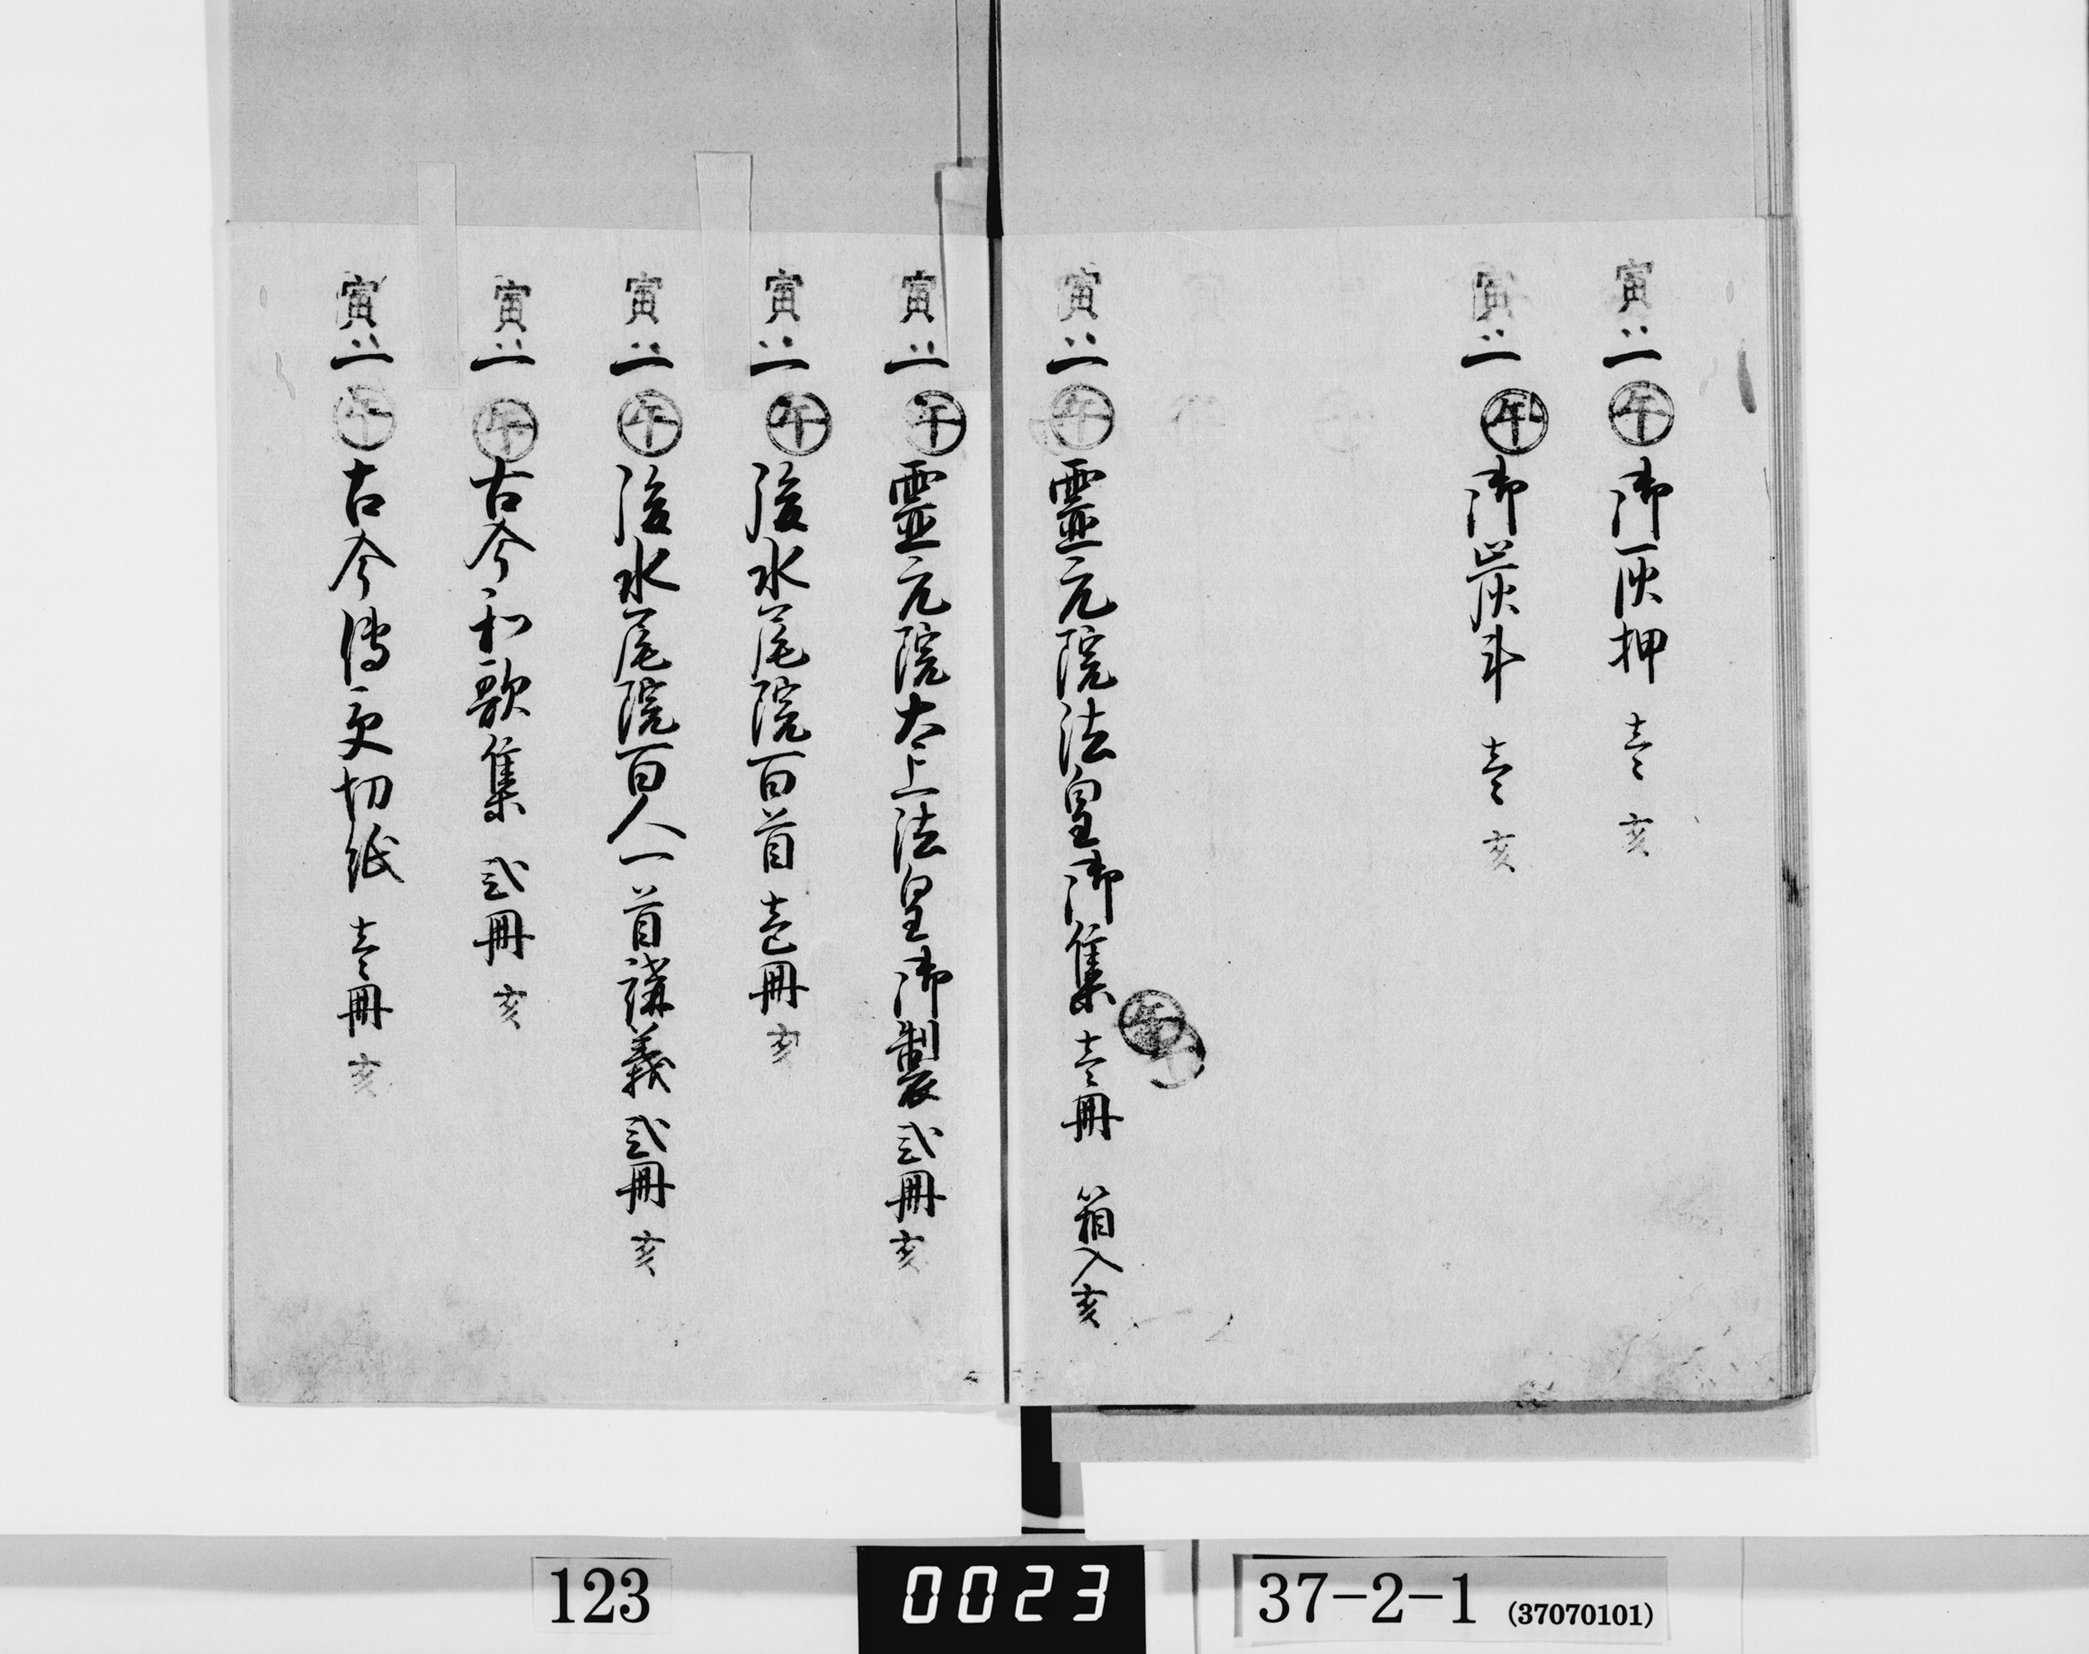 寅 一 午 御灰押 壱 亥
寅 一 午 御炭斗 壱 亥
寅 一 午 霊元院法皇御集 壱冊 箱入 亥
午 午
寅 一 午 霊元院太上法皇御製 弐冊 亥
寅 一 午 後水尾院百首 壱冊 亥
寅 一 午 後水尾院百人一首講義 弐冊 亥
寅 一 午 古今和歌集 弐冊 亥
寅 一 午 古今傳受切紙 壱冊 亥
123
0023
37-2-1 (37070101)